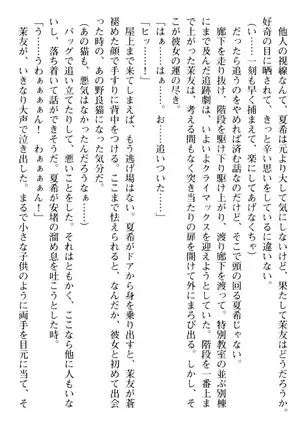 他人の視線なんて、夏希は元元より大して気にしないけれど、果たして茉友はどうだろうか。
好奇の目に晒されて、きっと辛い思いをしているに違いない。
（……一刻も早く捕まえて、楽にしてあげなくちゃ）
だったら追うのをやめれば済む話なのだけど、そこで頭の回る夏希じゃない。
廊下を走り抜け、階段を駆け下り駆け上がり、渡り廊下を渡って。特別教室の並ぶ別棟
にまで及んだ追跡劇は、いよいよクライマックスを迎えようとしていた。階段を一番上ま
で上った茉友は、考える間もなく突き当たりの扉を開けて外にまろび出る。しかし、そ
こが彼女の運の尽き。
「はぁ……はぁ……。お……追いついた……」
「ヒッ……！」
屋上まで来てしまえば、もう逃げ場はない。夏希がドアから身を乗り出すと、茉友が蒼
褪めた顔で手すりに背中を押しつける。ここまで怯えられると、なんだか、彼女と初めて出会
った時の、あの野良猫になった気分だ。
（あの猫も、悪気はなかったんだろうなぁ……）
バッグで追い立てたりして、悪いことをした。それはともかく、ここなら他に人もいな
い。落ち着いて話ができそうだ。夏希が安堵の溜め息を吐こうとした時だった。
「う……うわぁぁぁぁん！　わぁぁぁぁん！」
茉友が、いきなり大声で泣き出した。まるで小さな子供のように両手を目元に当て、